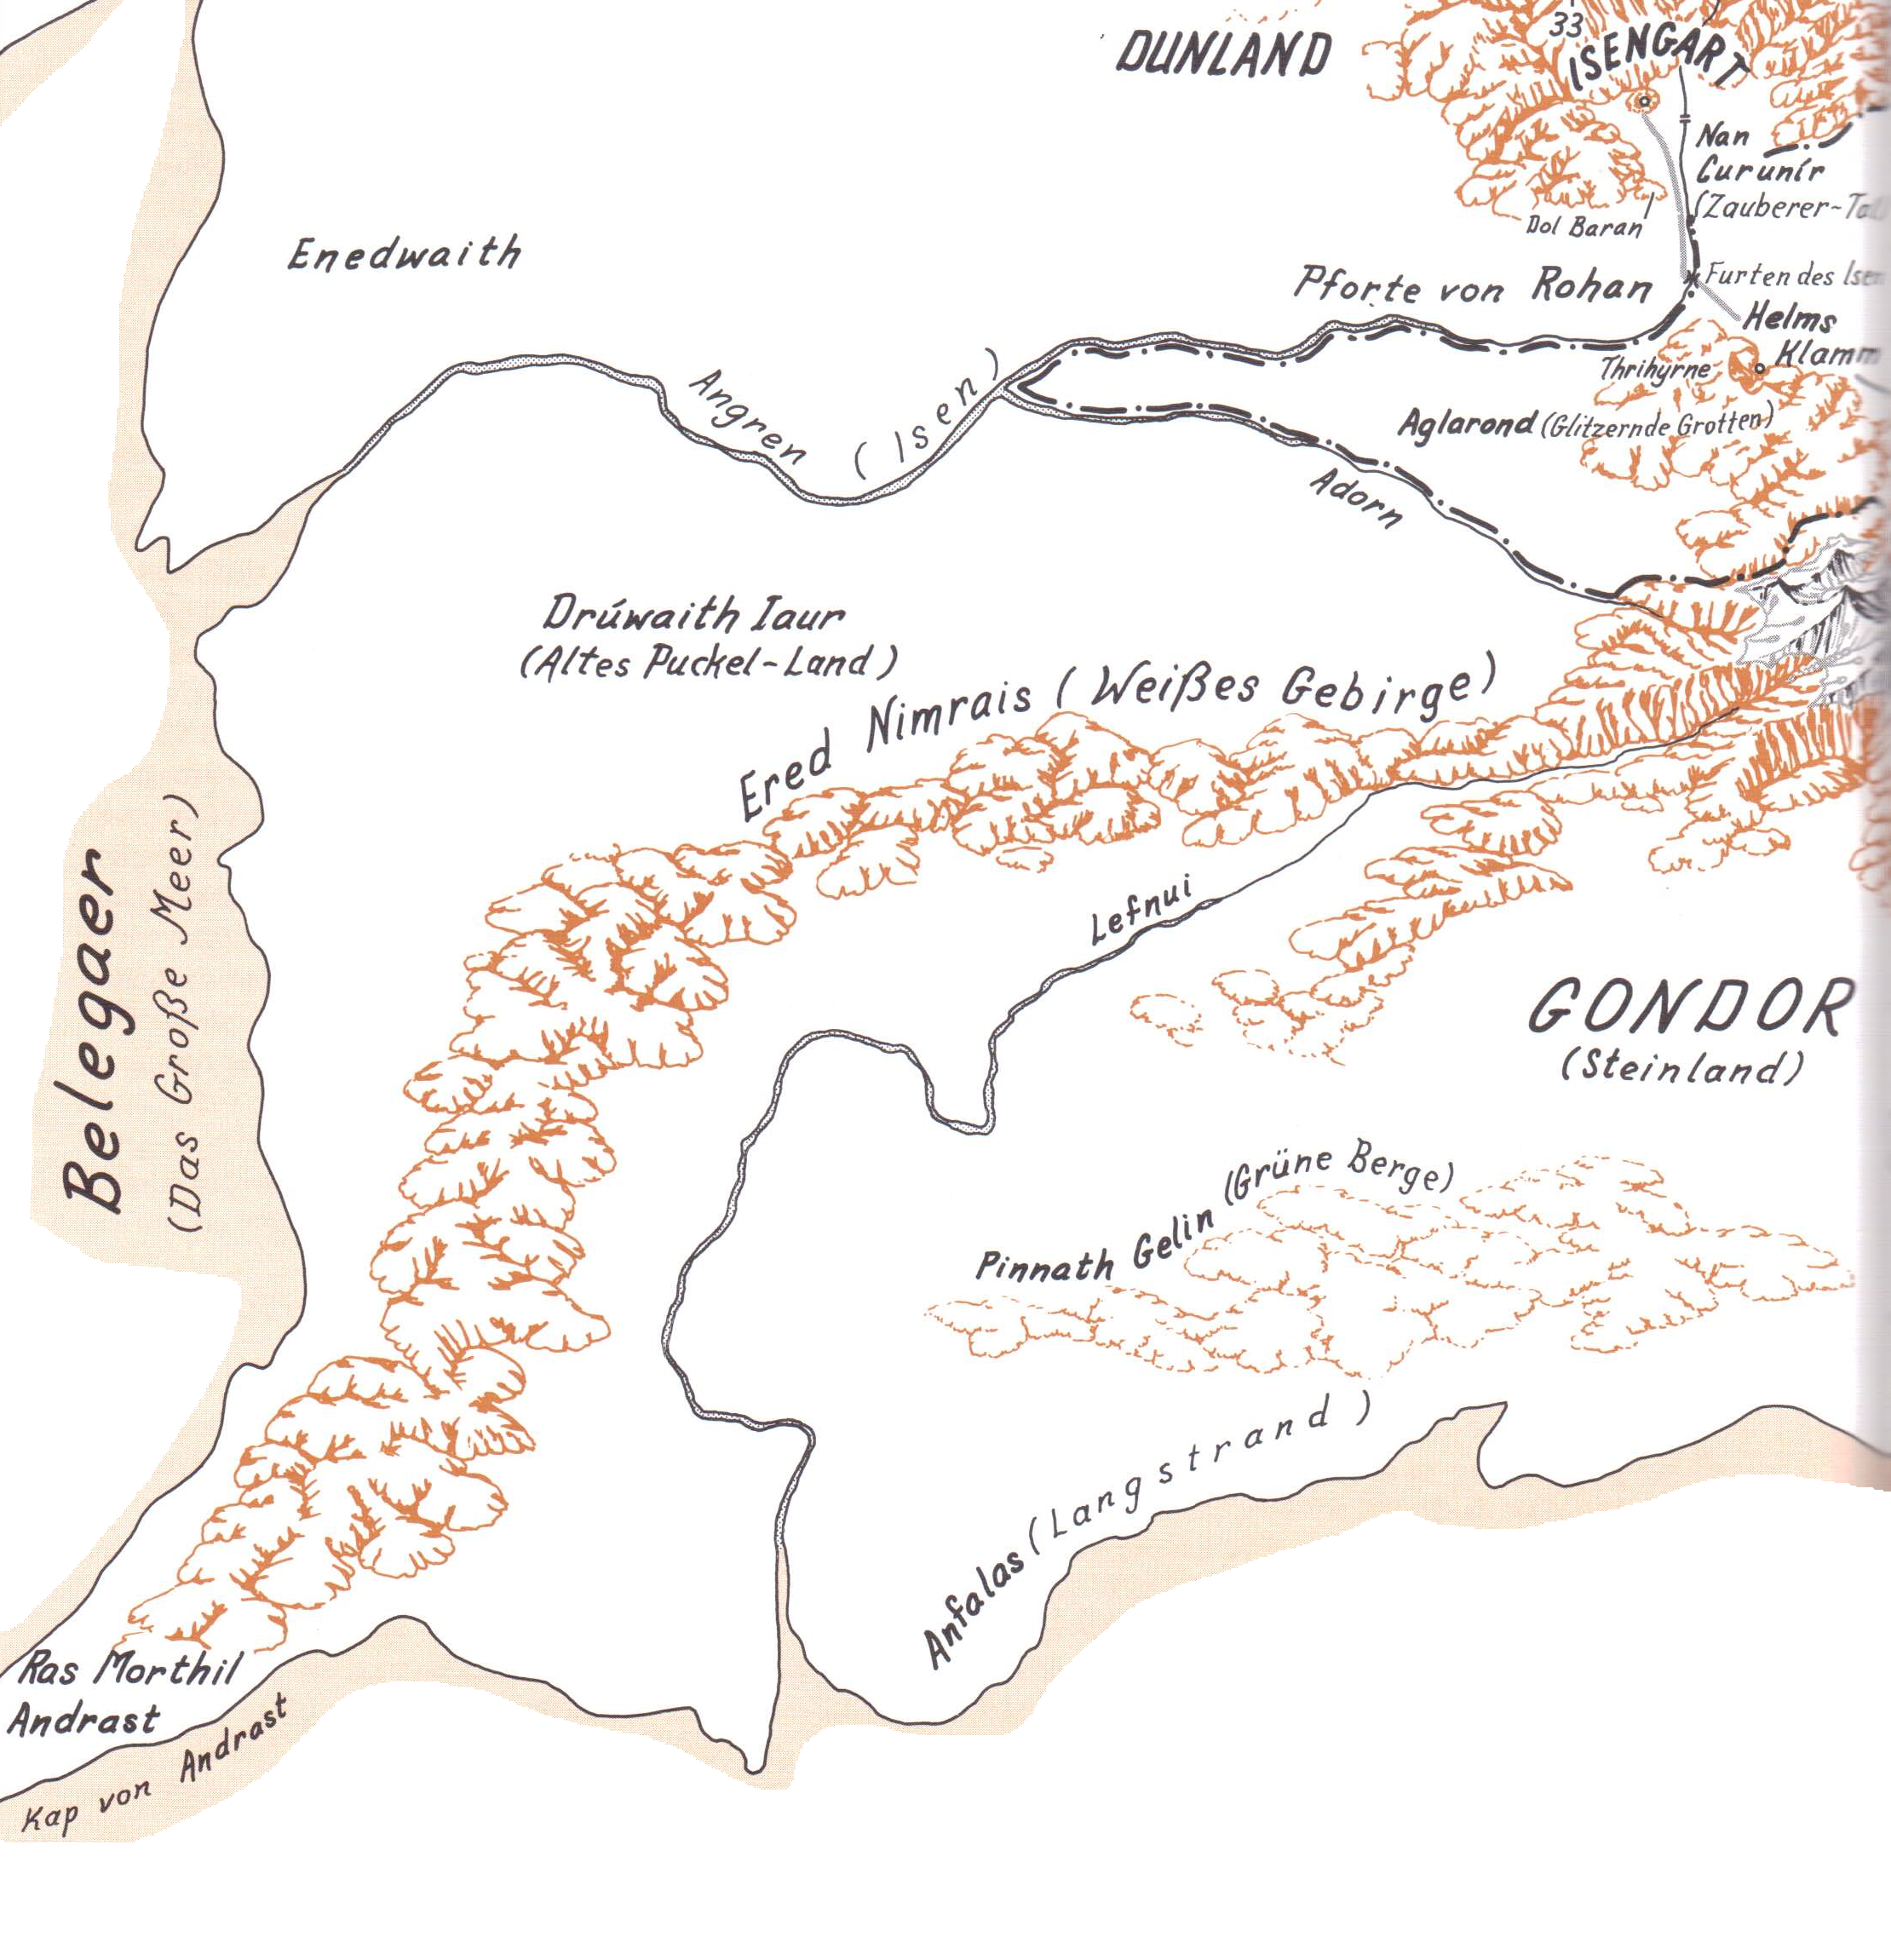 DUNLAND
33
ISENGART
Nan
Curunír
(Zauberer-Tal
Dol Baran
Enedwaith
Pforte von Rohan
Furten des Isen
Helms
Klamm
Thrihyrne
Angren (Isen)
Aglarond (Glitzernde Grotten)
Adorn
Drúwaith Iaur
(Altes Puckel-Land)
Ered Nimrais (Weißes Gebirge)
Belegaer
(Das Große Meer)
Lefnui
GONDOR
(Steinland)
Pinnath Gelin (Grüne Berge)
Anfalas (Langstrand)
Ras Morthil
Andrast
Kap von Andrast